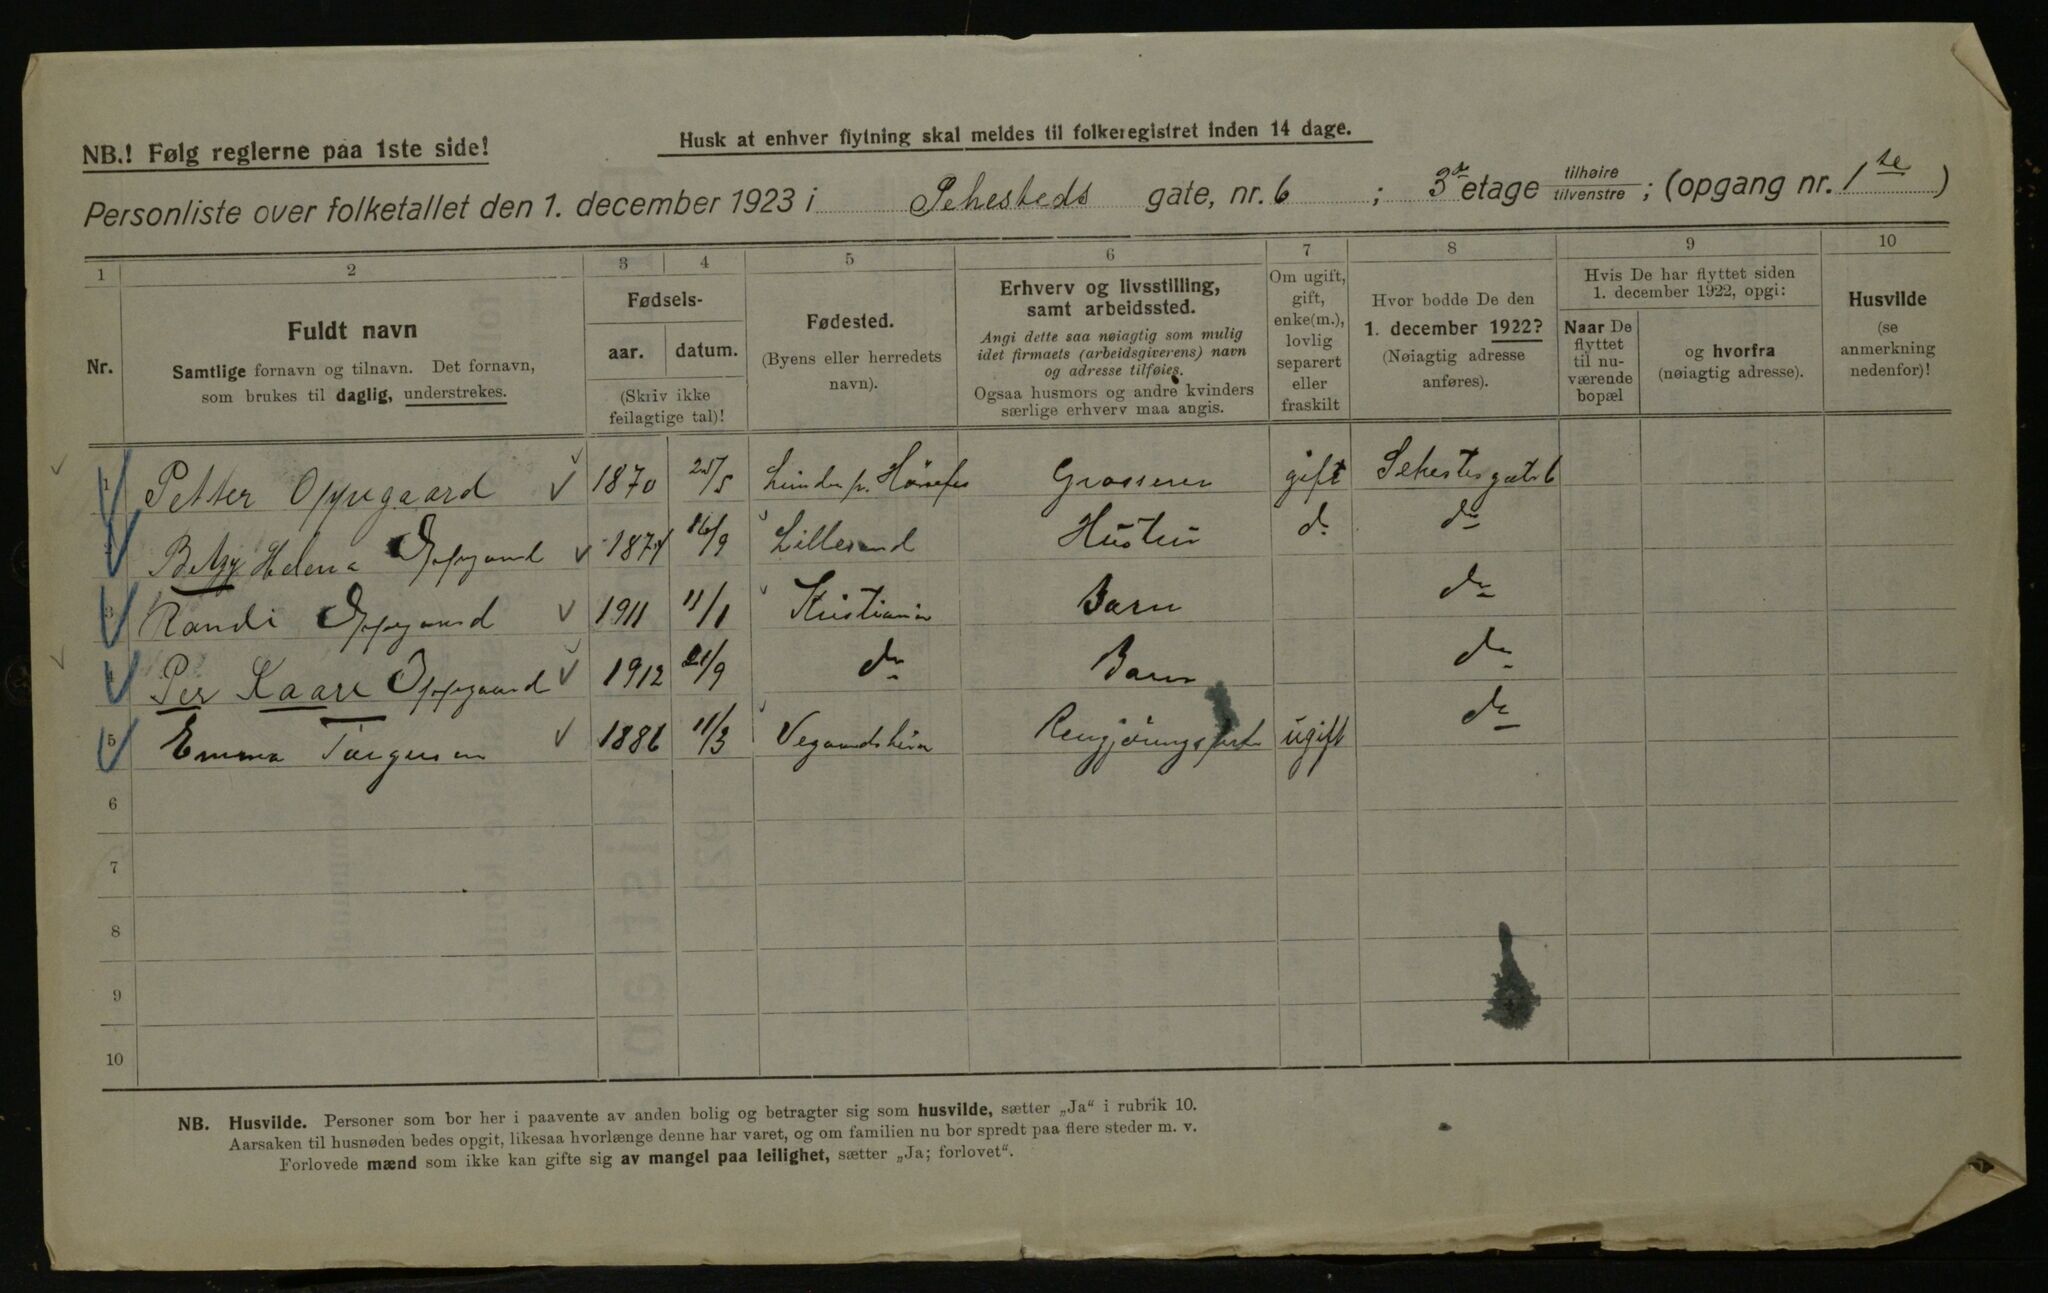 NB.! Følg reglerne paa 1ste side!
Husk at enhver flytning skal meldes til folkeregistret inden 14 dage.
Personliste over folketallet den 1. december 1923 i Sehesteds gate, nr. 6 ; 3 etage tilhøire tilvenstre ; (opgang nr. 1ste )
1 2 3 4 5 6 7 8 9 10
Nr.
Fuldt navn
Samtlige fornavn og tilnavn. Det fornavn,
som brukes til daglig, understrekes.
Fødsels-
aar. datum.
(Skriv ikke
feilagtige tal)!
Fødested.
(Byens eller herredets
navn).
Erhverv og livsstilling,
samt arbeidssted.
Angi dette saa nøiagtig som mulig
idet firmaets (arbeidsgiverens) navn
og adresse tilføies.
Ogsaa husmors og andre kvinders
særlige erhverv maa angis.
Om ugift,
gift,
enke(m.),
lovlig
separert
eller
fraskilt
Hvor bodde De den
1. december 1922?
(Nøiagtig adresse
anføres).
Hvis De har flyttet siden
1. december 1922, opgi:
Naar De
flyttet
til nu-
værende
bopæl
og hvorfra
(nøiagtig adresse).
Husvilde
(se
anmerkning
nedenfor)!
1 Petter Oppegaard 1870 25/5 Grosserer gift
2 Betzy Helena Oppegaard 16/9 Lillesand Hustru do do
3 Randi Oppegaard 1911 11/1 Kristiania Barn do
4 Per Kaare Oppegaard 1912 21/9 do Barn do
5 Emma Torgersen 1886 11/3 Vegaardsheia ugift do
6
7
8
9
10
NB. Husvilde. Personer som bor her i paavente av anden bolig og betragter sig som husvilde, sætter „Ja“ i rubrik 10.
Aarsaken til husnøden bedes opgit, likesaa hvorlænge denne har varet, og om familien nu bor spredt paa flere steder m. v.
Forlovede mænd som ikke kan gifte sig av mangel paa leilighet, sætter „Ja; forlovet“.